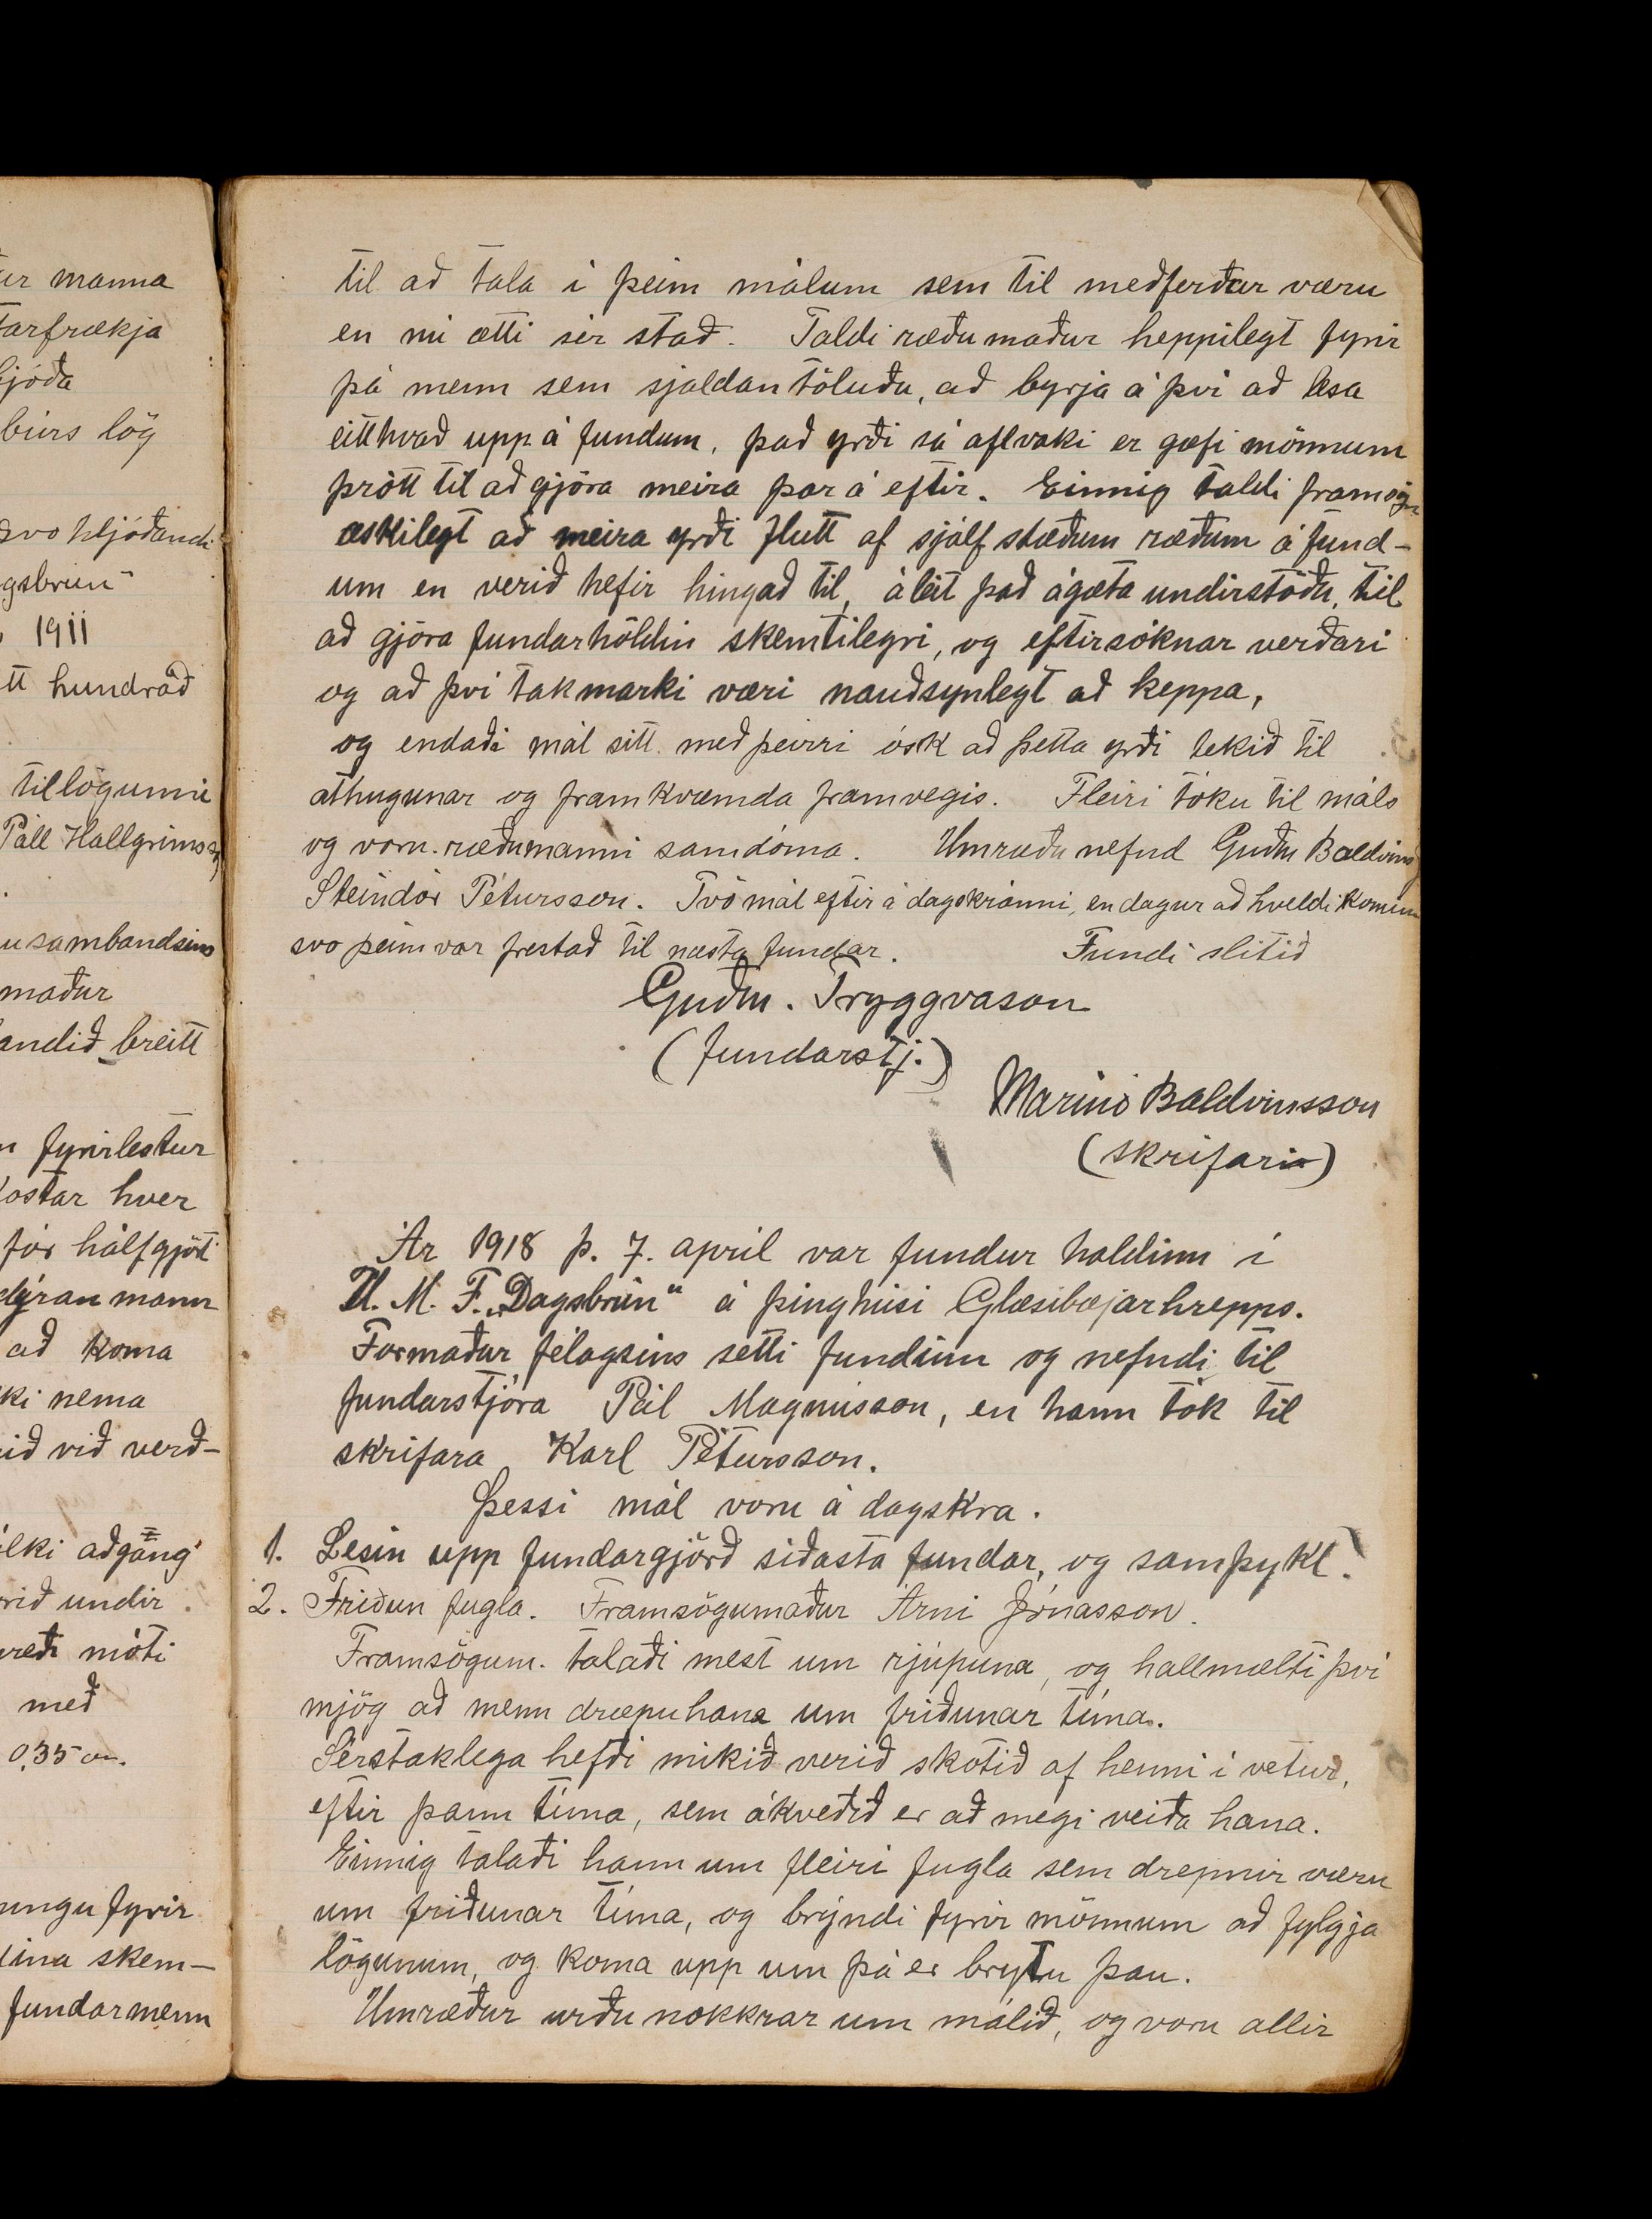 ur manna
tarfrækja
bjóða
búrs lög
svo hljóðandi
gsbrún"
1911
tt hundrað
tillögunni
Páll Hallgrímss
u sambandsins
maður
andið breitt
fyrirlestur
kostar hver
fór hálfgjört
dýran mann
að koma
ki nema
ið við verð-
ilki aðgang
rið undir
móti
með
0,35 au.
ungu fyrir
skem-
fundarmenn
til að tala í þeim málum sem til meðferðar væru
en nú ætti sér stað. Taldi ræðumaður heppilegt fyrir
þá menn sem sjaldan töluðu, að byrja á því að lesa
eitthvað upp á fundum, það yrði sá aflvaki er gæfi mönnum
þrótt til að gjöra meira þar á eftir. Einnig taldi framsögu
æskilegt að meira yrði flutt af sjálfstæðum ræðum á fund-
um en verið hefir hingað til, áleit það ágæta undirstöðu, til
að gjöra fundarhöldin skemtilegri, og eftirsóknar verðari
og að því takmarki væri nauðsynlegt að keppa,
og endaði mál sitt með þeirri ósk að þetta yrði tekið til
athugunar og framkvæmda framvegis. Fleiri tóku til máls
og voru ræðumanni samdóma. Umræðu nefnd Guðm Baldvinss
Steindór Pétursson. Tvö mál eftir á dagskránni, en dagur að kveldi kominn
svo þeim var frestað til næsta fundar. Fundi slitið
Guðm. Tryggvason
(fundarstj.)
Marinó Baldvinsson
(skrifari)
Ár 1918 þ. 7. april var fundur haldinn í
U. M. F. „Dagsbrún" á þinghúsi Glæsibæjarhrepps.
Formaður félagsins setti fundinn og nefndi til
fundarstjóra Pál Magnússon, en hann tók til
skrifara Karl Pétursson.
Þessi mál voru á dagskra.
1. Lesin upp fundargjörð síðasta fundar, og samþykt.
2. Friðun fugla. Framsögumaður Árni Jónasson.
Framsögum. talaði mest um rjúpuna, og hallmælti því
mjög að menn dræpu hana um friðunar tíma.
Sérstaklega hefði mikið verið skotið af henni í vetur,
eftir þann tíma, sem ákveðið er að megi veiða hana.
Einnig talaði hann um fleiri fugla sem drepnir væru
um friðunar tíma, og brýndi fyrir mönnum að fylgja
lögunum, og koma upp um þá er brytu þau.
Umræður urðu nokkrar um málið, og voru allir